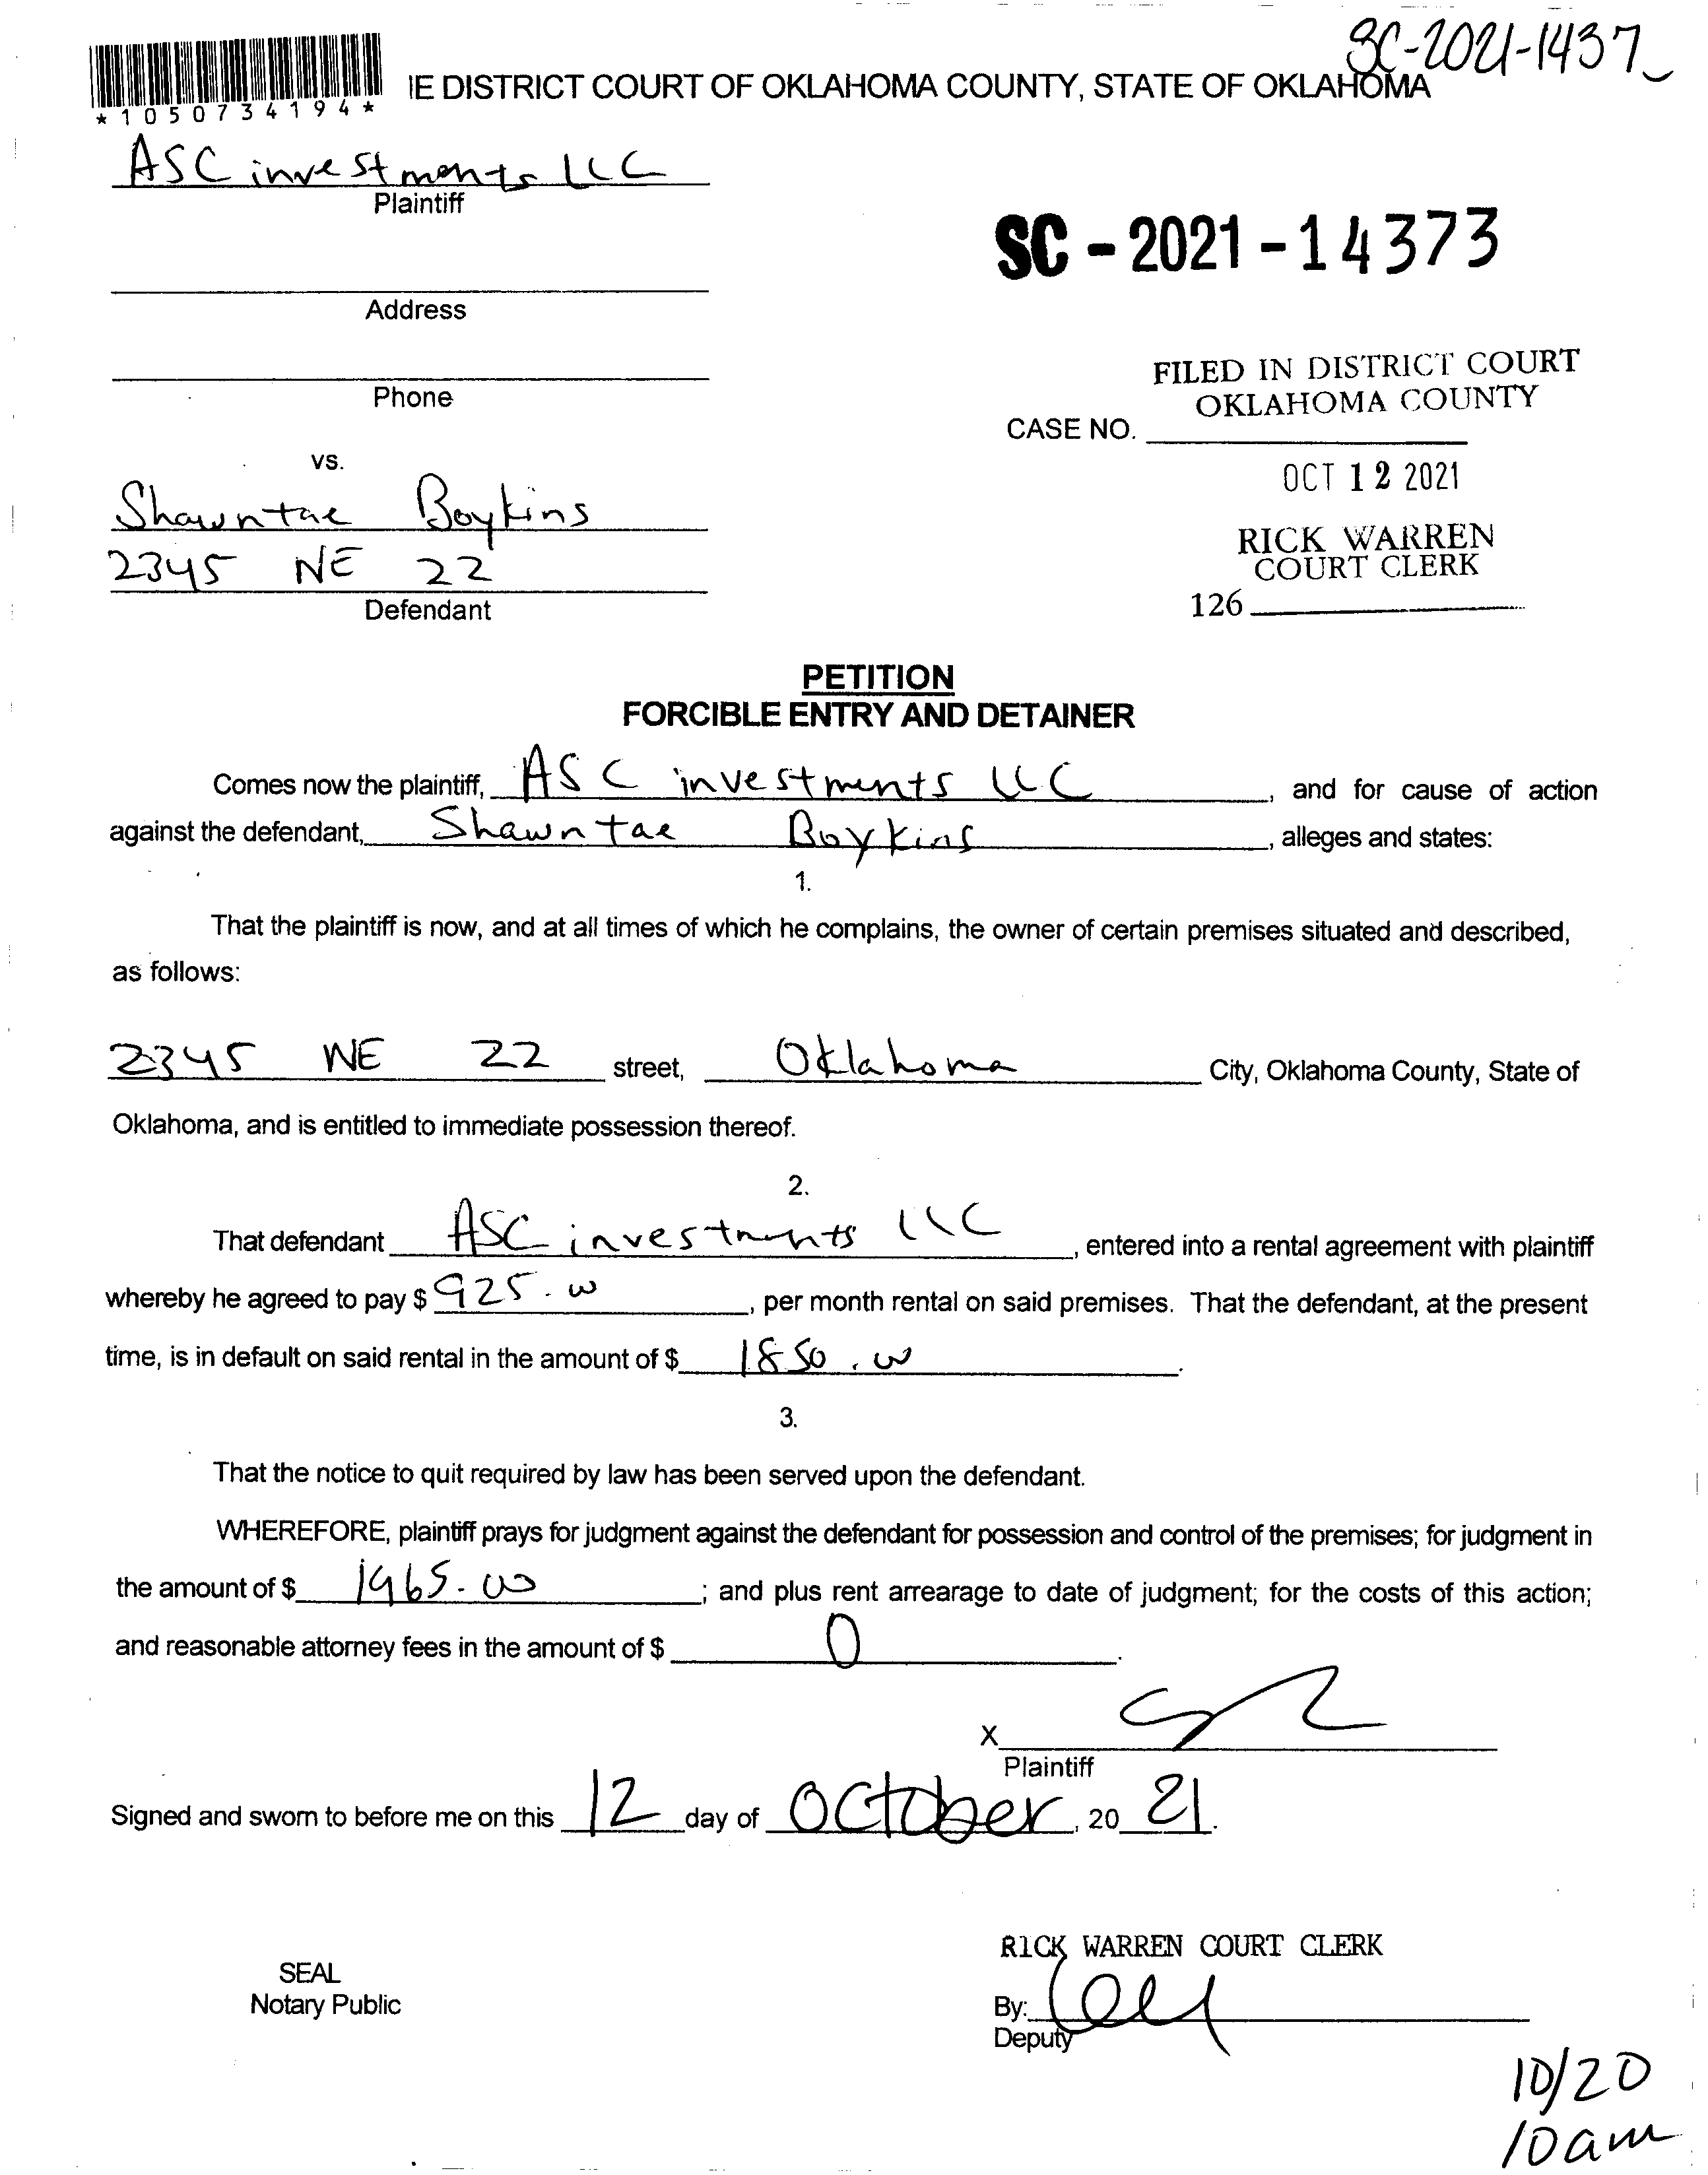 SC-2021-1437
*1050734194*
IE DISTRICT COURT OF OKLAHOMA COUNTY, STATE OF OKLAHOMA
ASC investments LLC
Plaintiff
SC - 2021 - 14373
Address
FILED IN DISTRICT COURT
OKLAHOMA COUNTY
Phone
CASE NO.
vs.
OCT 12 2021
Shawntae Boykins
RICK WARREN
COURT CLERK
2345 NE 22
Defendant
126
PETITION
FORCIBLE ENTRY AND DETAINER
Comes now the plaintiff, ASC investments LLC, and for cause of action
against the defendant, Shawntae Boykins, alleges and states:
1.
That the plaintiff is now, and at all times of which he complains, the owner of certain premises situated and described,
as follows:
2345 NE 22 street, Oklahoma City, Oklahoma County, State of
Oklahoma, and is entitled to immediate possession thereof.
2.
That defendant ASC investments LLC, entered into a rental agreement with plaintiff
whereby he agreed to pay $ 925.00, per month rental on said premises. That the defendant, at the present
time, is in default on said rental in the amount of $ 1850.00.
3.
That the notice to quit required by law has been served upon the defendant.
WHEREFORE, plaintiff prays for judgment against the defendant for possession and control of the premises; for judgment in
the amount of $ 1965.00; and plus rent arrearage to date of judgment; for the costs of this action;
and reasonable attorney fees in the amount of $ 0.
X
Plaintiff
Signed and sworn to before me on this 12 day of October, 20 21.
RICK WARREN COURT CLERK
SEAL
Notary Public
By:
Deputy
10/20
10am